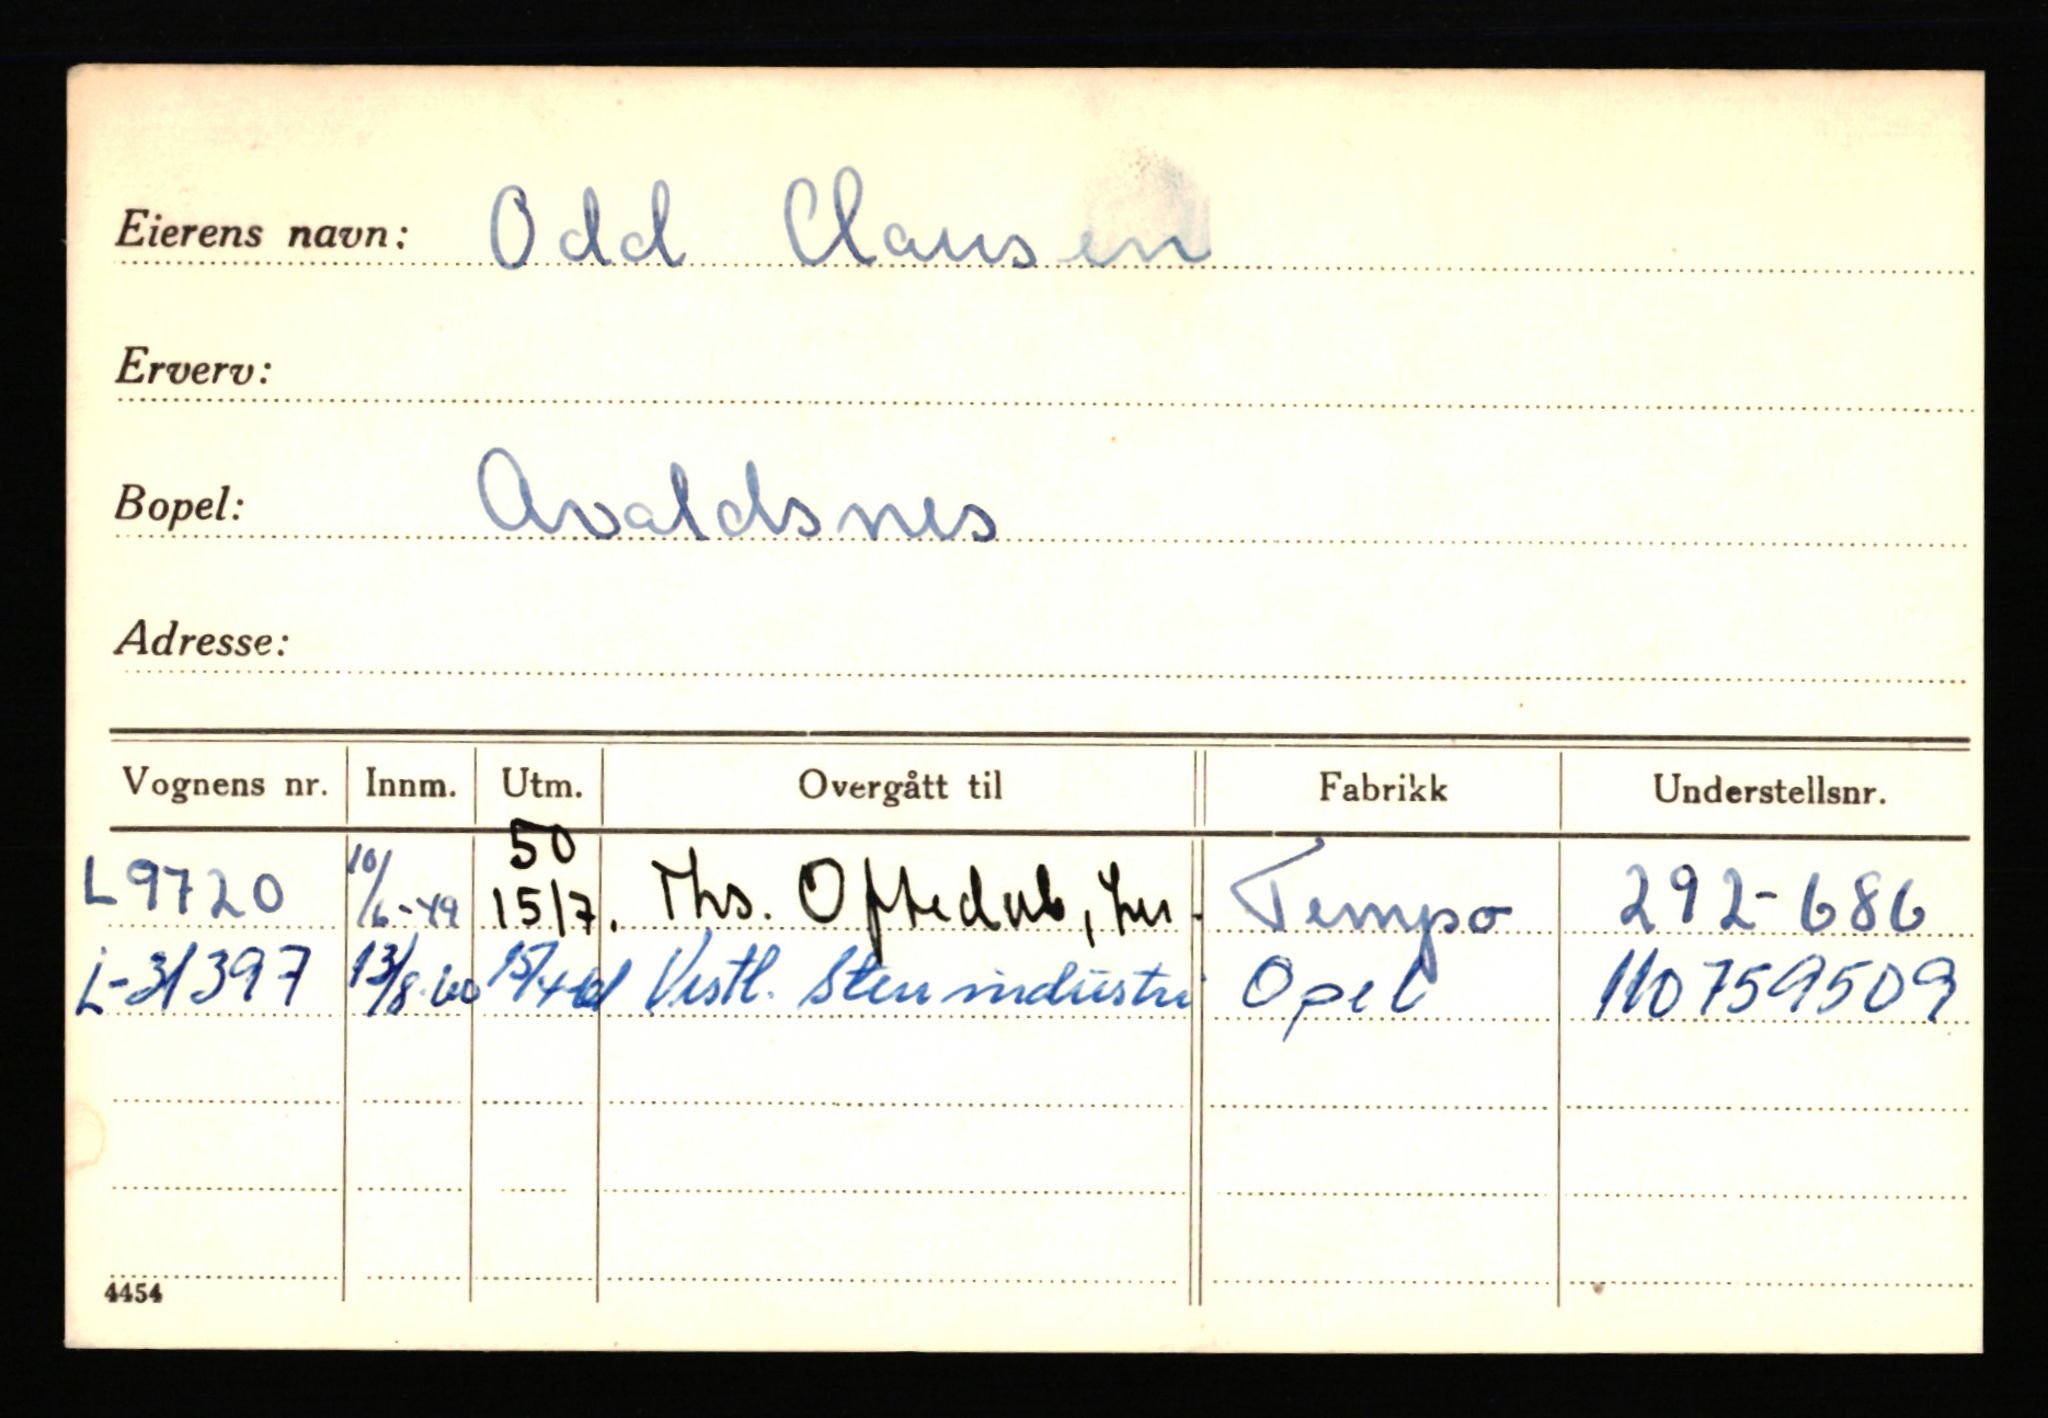 Eierens navn: Odd Clausen
Erverv:
Bopel: Avaldsnes
Adresse:
Vognens nr. Innm. Utm. Overgått til Fabrikk Understellsnr.
50
L 9720 10/6-49 15/7. Ths. Oftedal, Tempo 292-686
L-31397 13/8-60 15/4-61 Vestl. Stenindustri Opel 110759509
4454